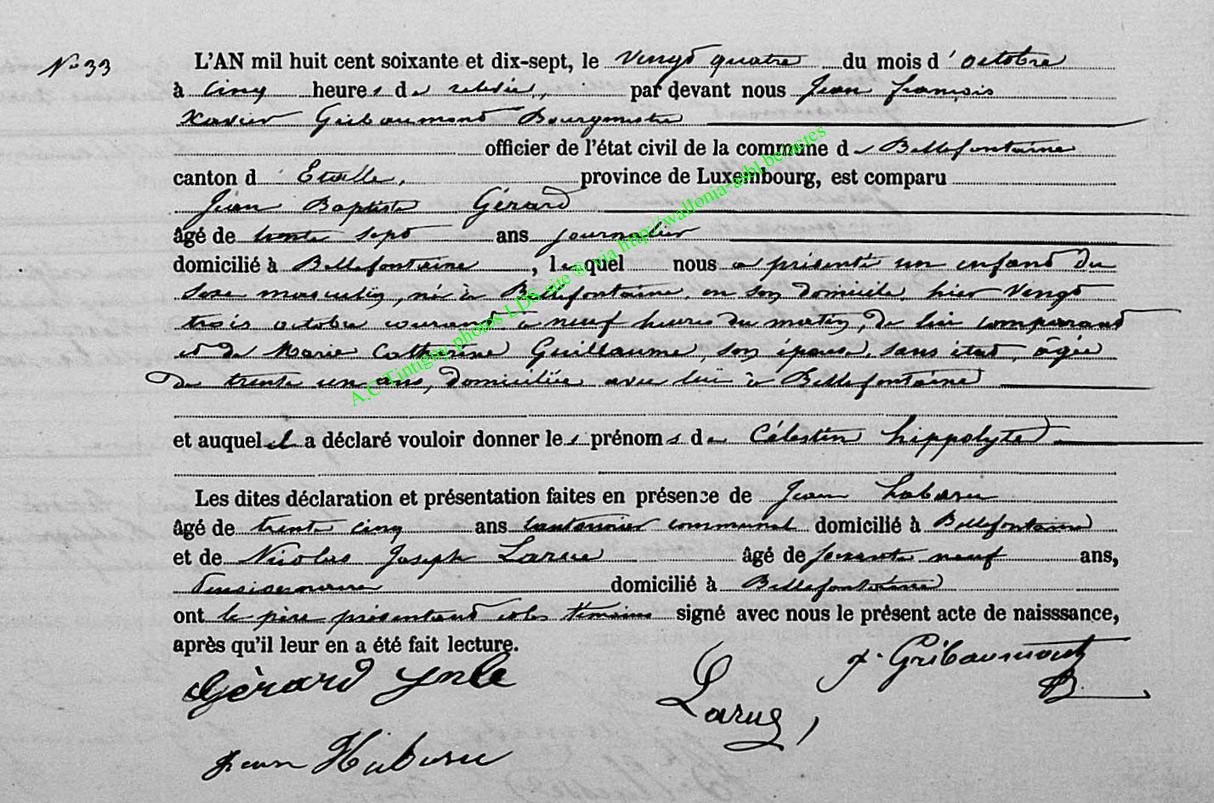 N° 33
L'AN mil huit cent soixante et dix-sept, le vingt quatre du mois d'octobre
à cinq heures de relevée, par devant nous Jean François
Xavier Gribaumont Bourgmestre
officier de l'état civil de la commune de Bellefontaine
canton d'Etalle, province de Luxembourg, est comparu
Jean Baptiste Gérard
âgé de trente sept ans journalier
domicilié à Bellefontaine, lequel nous a présenté un enfant du
sexe masculin, né à Bellefontaine, en son domicile, hier vingt
trois octobre courant à neuf heures du matin, de lui comparant
et de Marie Catherine Guillaume, son épouse, sans état, âgée
de trente un ans, domiciliée avec lui à Bellefontaine
et auquel il a déclaré vouloir donner les prénoms de Célestin hippolyte
Les dites déclaration et présentation faites en présence de Jean
âgé de trente cinq ans cantonnier communal domicilié à Bellefontaine
et de Nicolas Joseph Larue âgé de soixante neuf ans,
pensionnaire domicilié à Bellefontaine
ont le père présentant et les témoins signé avec nous le présent acte de naisssance,
après qu'il leur en a été fait lecture.
Gèrard
Larue
x. Gribaumont
B.
Jean
A.C Tintigny photos LDS site ® via http://wallonia-asbl.be/actes